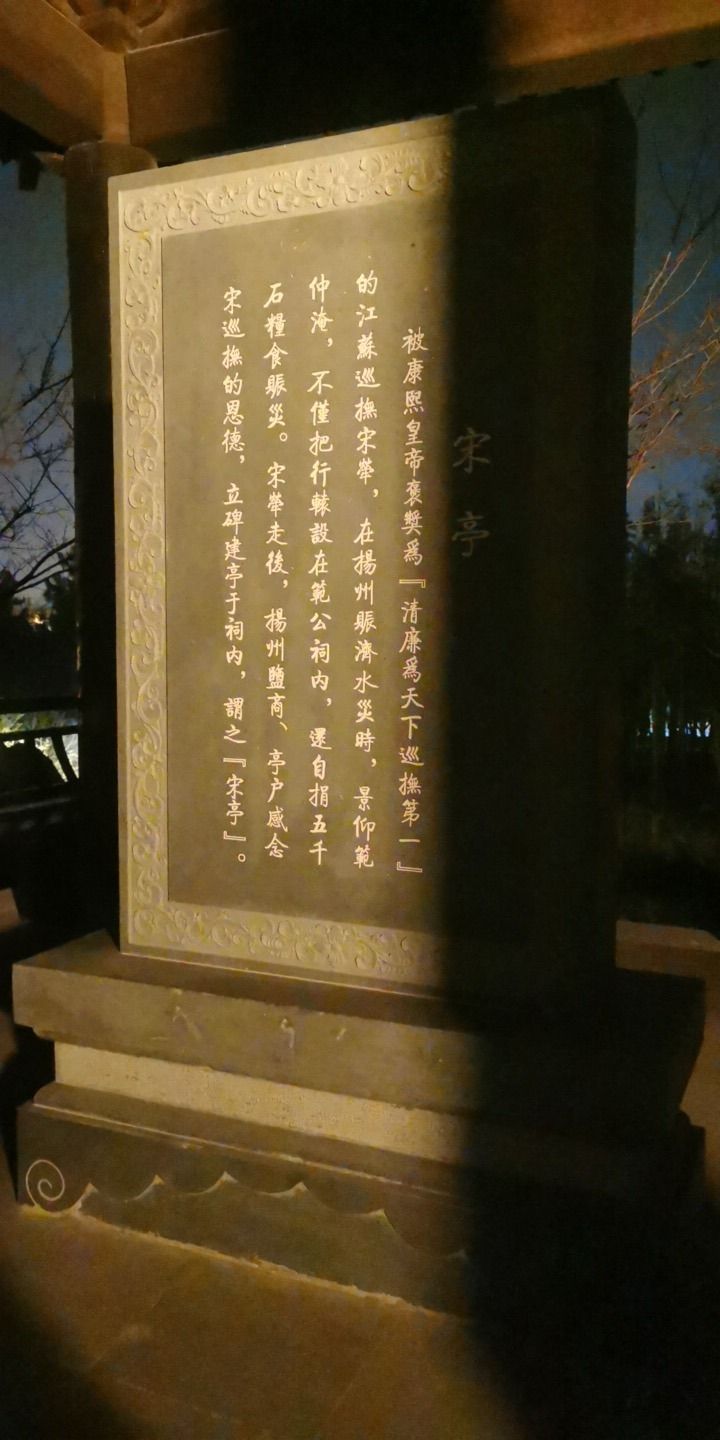 宋亭
被康熙皇帝褒獎爲『清廉爲天下巡撫第一』
的江蘇巡撫宋犖，在揚州賑濟水災時，景仰範
仲淹，不僅把行轅設在範公祠内，還自捐五千
石糧食賑災。宋犖走後，揚州鹽商、亭户感念
宋巡撫的恩德，立碑建亭于祠内，謂之『宋亭』。